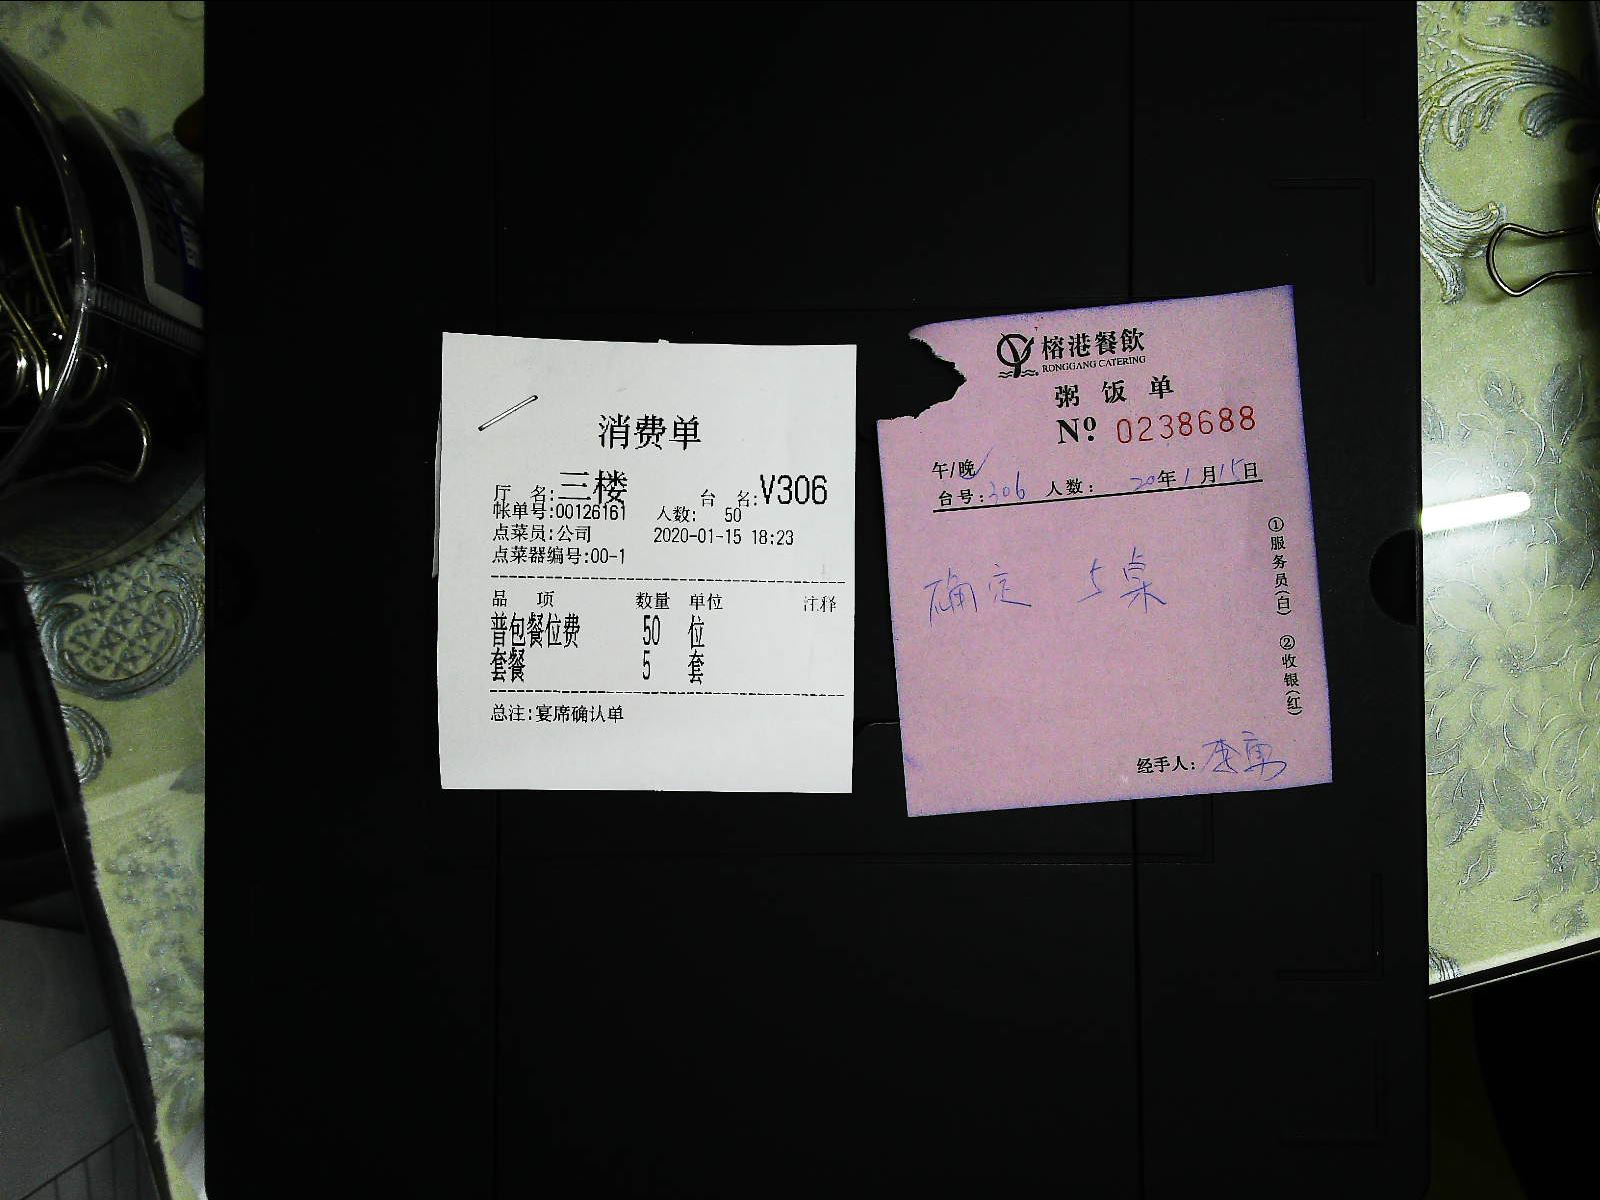 消费单
厅 名:三楼 台 名:V306
帐单号:00126161 人数: 50
点菜员:公司 2020-01-15 18:23
点菜器编号:00-1
品 项 数量 单位 注释
普包餐位费 50 位
套餐 5 套
总注:宴席确认单
榕港餐飲
RONGGANG CATERING
粥饭单
Nº 0238688
午/晚✓
台号:306 人数: 20年1月15日
确定 5桌
①服务员(白) ②收银(红)
经手人: